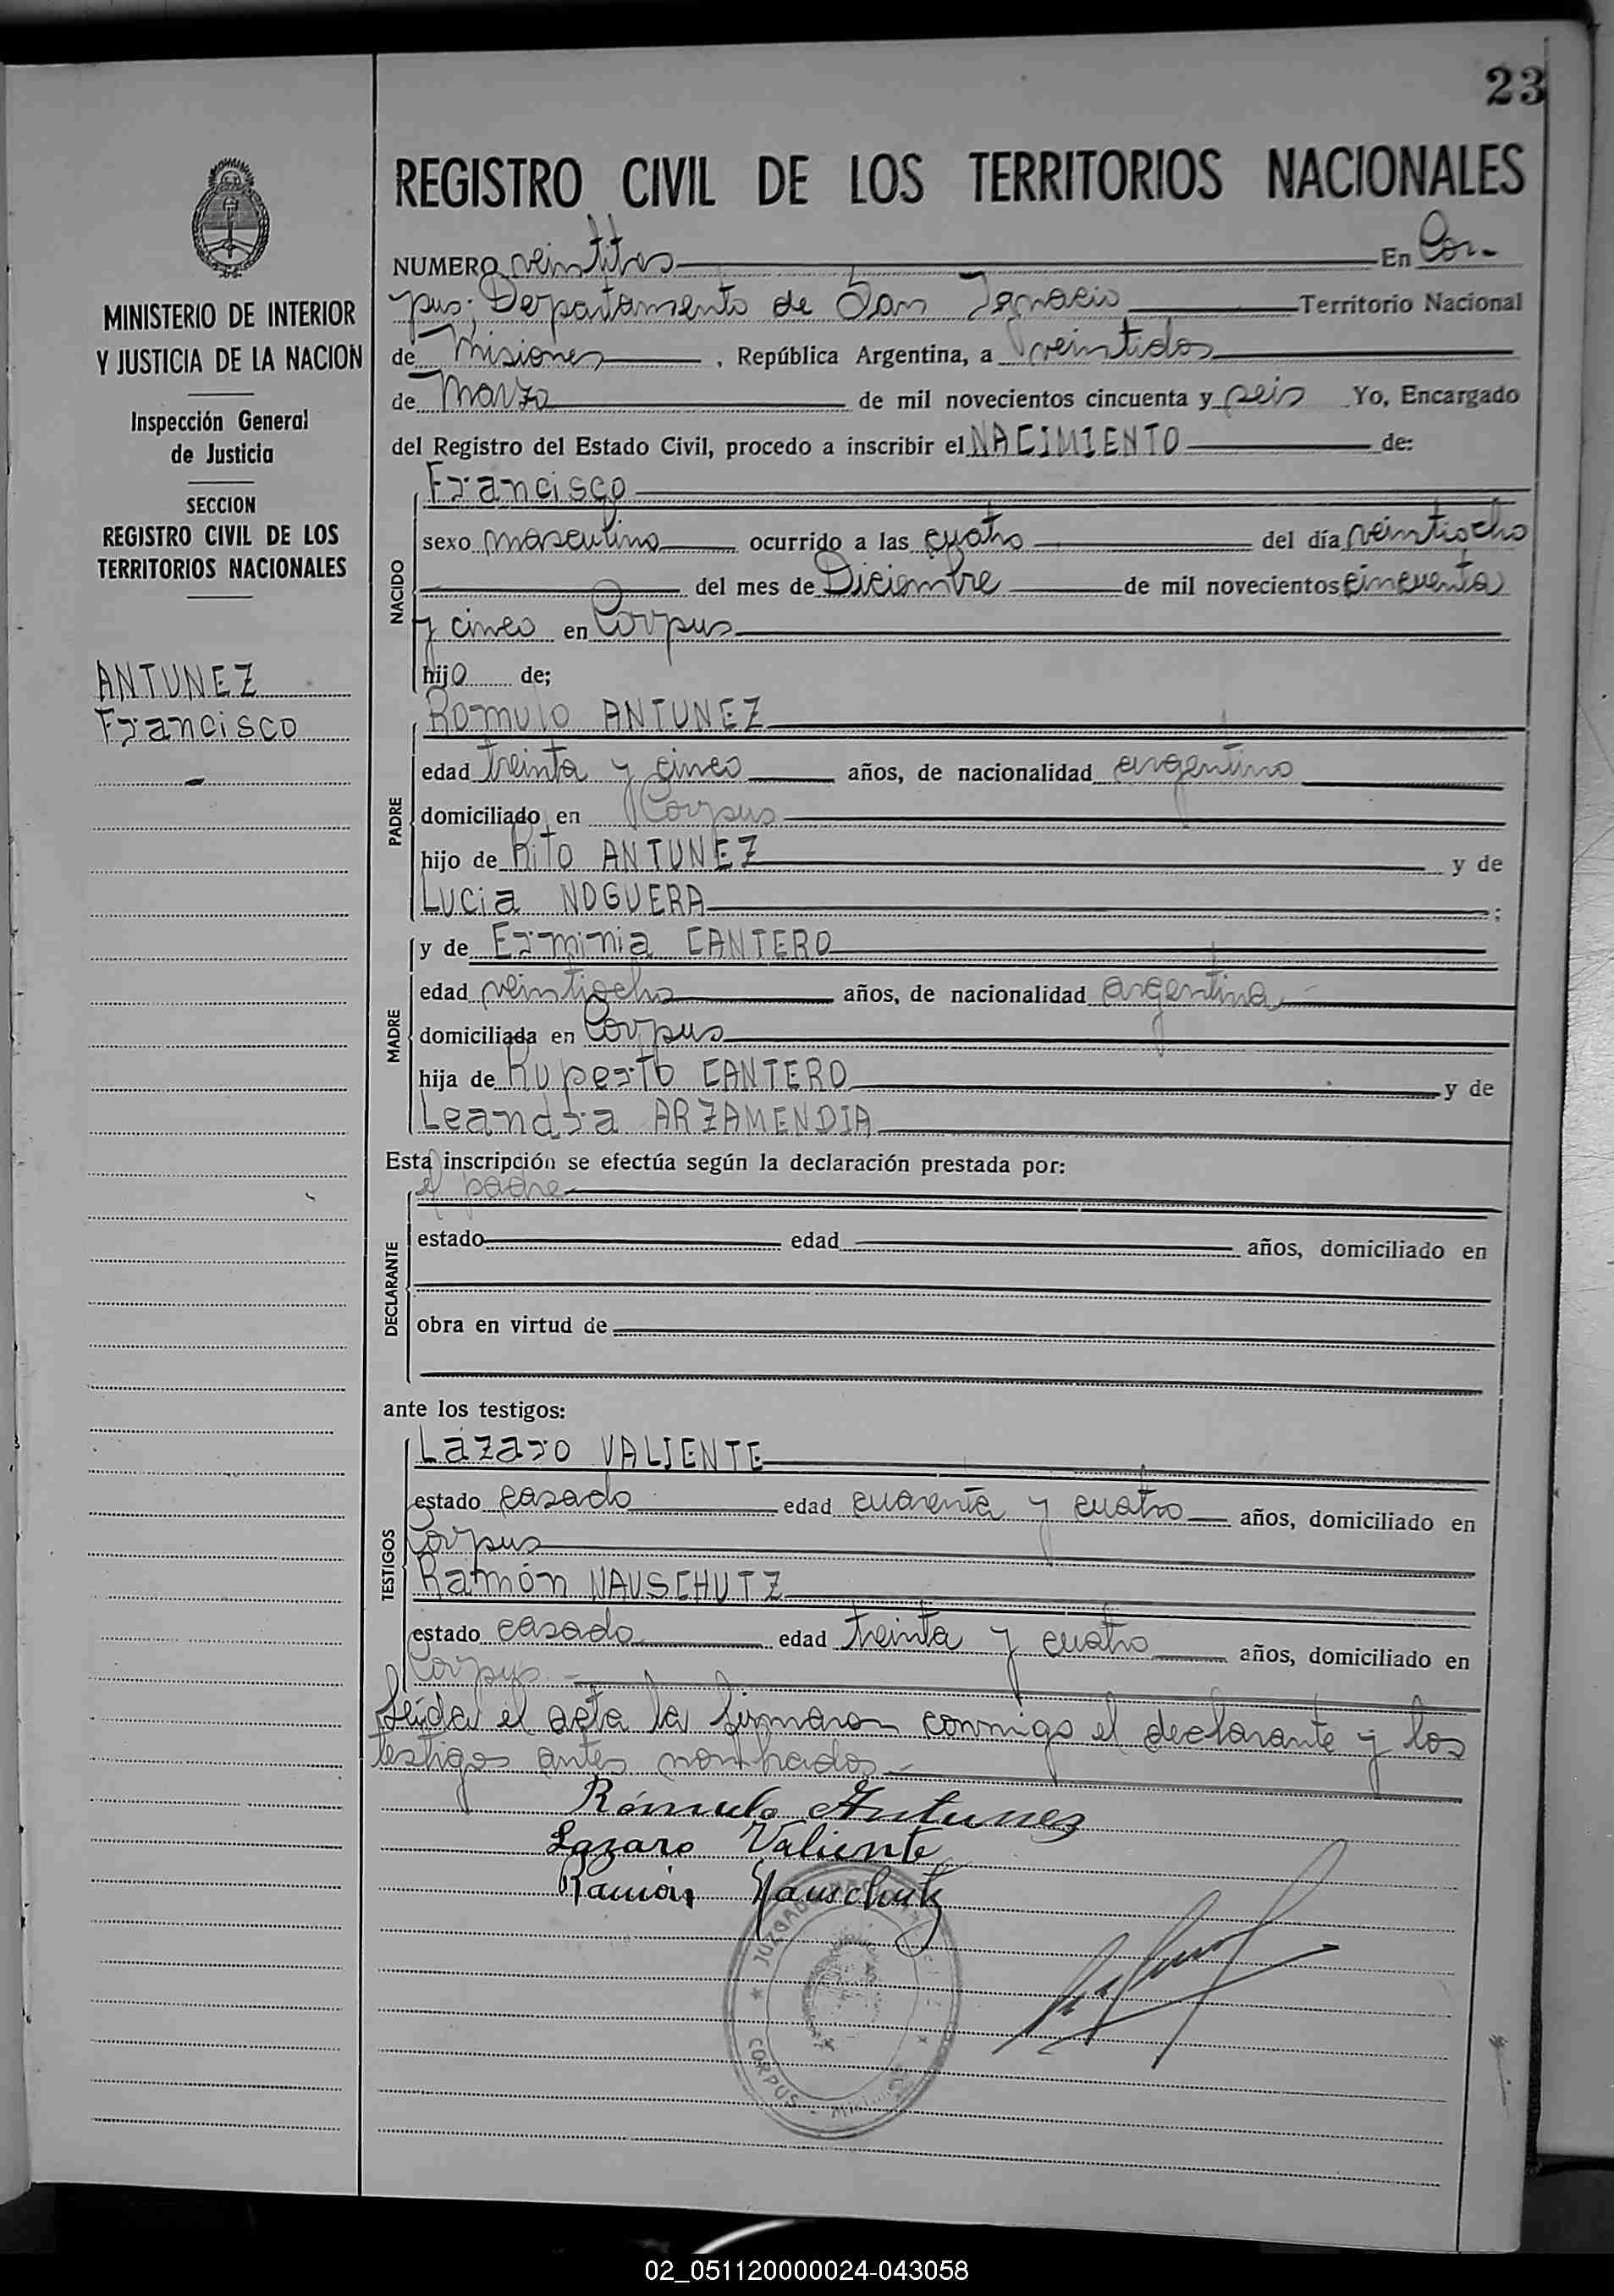 23
REGISTRO CIVIL DE LOS TERRITORIOS NACIONALES
NUMERO veintitres En Cor-
pus; Departamento de San Ignacio Territorio Nacional
de Misiones, República Argentina, a veintidos
de Marzo de mil novecientos cincuenta y seis Yo, Encargado
del Registro del Estado Civil, procedo a inscribir el NACIMIENTO de:
Francisco
sexo masculino ocurrido a las cuatro del día veintiocho
del mes de Diciembre de mil novecientos cincuenta
y cinco en Corpus
hijo de;
NACIDO
Romulo ANTUNEZ
edad treinta y cinco años, de nacionalidad argentino
domiciliado en Corpus
hijo de Rito ANTUNEZ y de
Lucia NOGUERA;
PADRE
y de Erminia CANTERO
edad veintiocho años, de nacionalidad argentina
domiciliada en Corpus
hija de Ruperto CANTERO y de
Leandra ARZAMENDIA
MADRE
Esta inscripción se efectúa según la declaración prestada por:
el padre
estado edad años, domiciliado en
obra en virtud de
DECLARANTE
ante los testigos:
Lázaro VALIENTE
estado casado edad cuarenta y cuatro años, domiciliado en
Corpus
Ramón NAUSCHUTZ
estado casado edad treinta y cuatro años, domiciliado en
Corpus
TESTIGOS
Leída el acta la firmaron conmigo el declarante y los
testigos antes nombrados
Rómulo Antunez
Lazaro Valiente
Ramón Nauschutz
JUZGADO
CORPUS
MINISTERIO DE INTERIOR
Y JUSTICIA DE LA NACION
Inspección General
de Justicia
SECCION
REGISTRO CIVIL DE LOS
TERRITORIOS NACIONALES
ANTUNEZ
Francisco
02_051120000024-043058